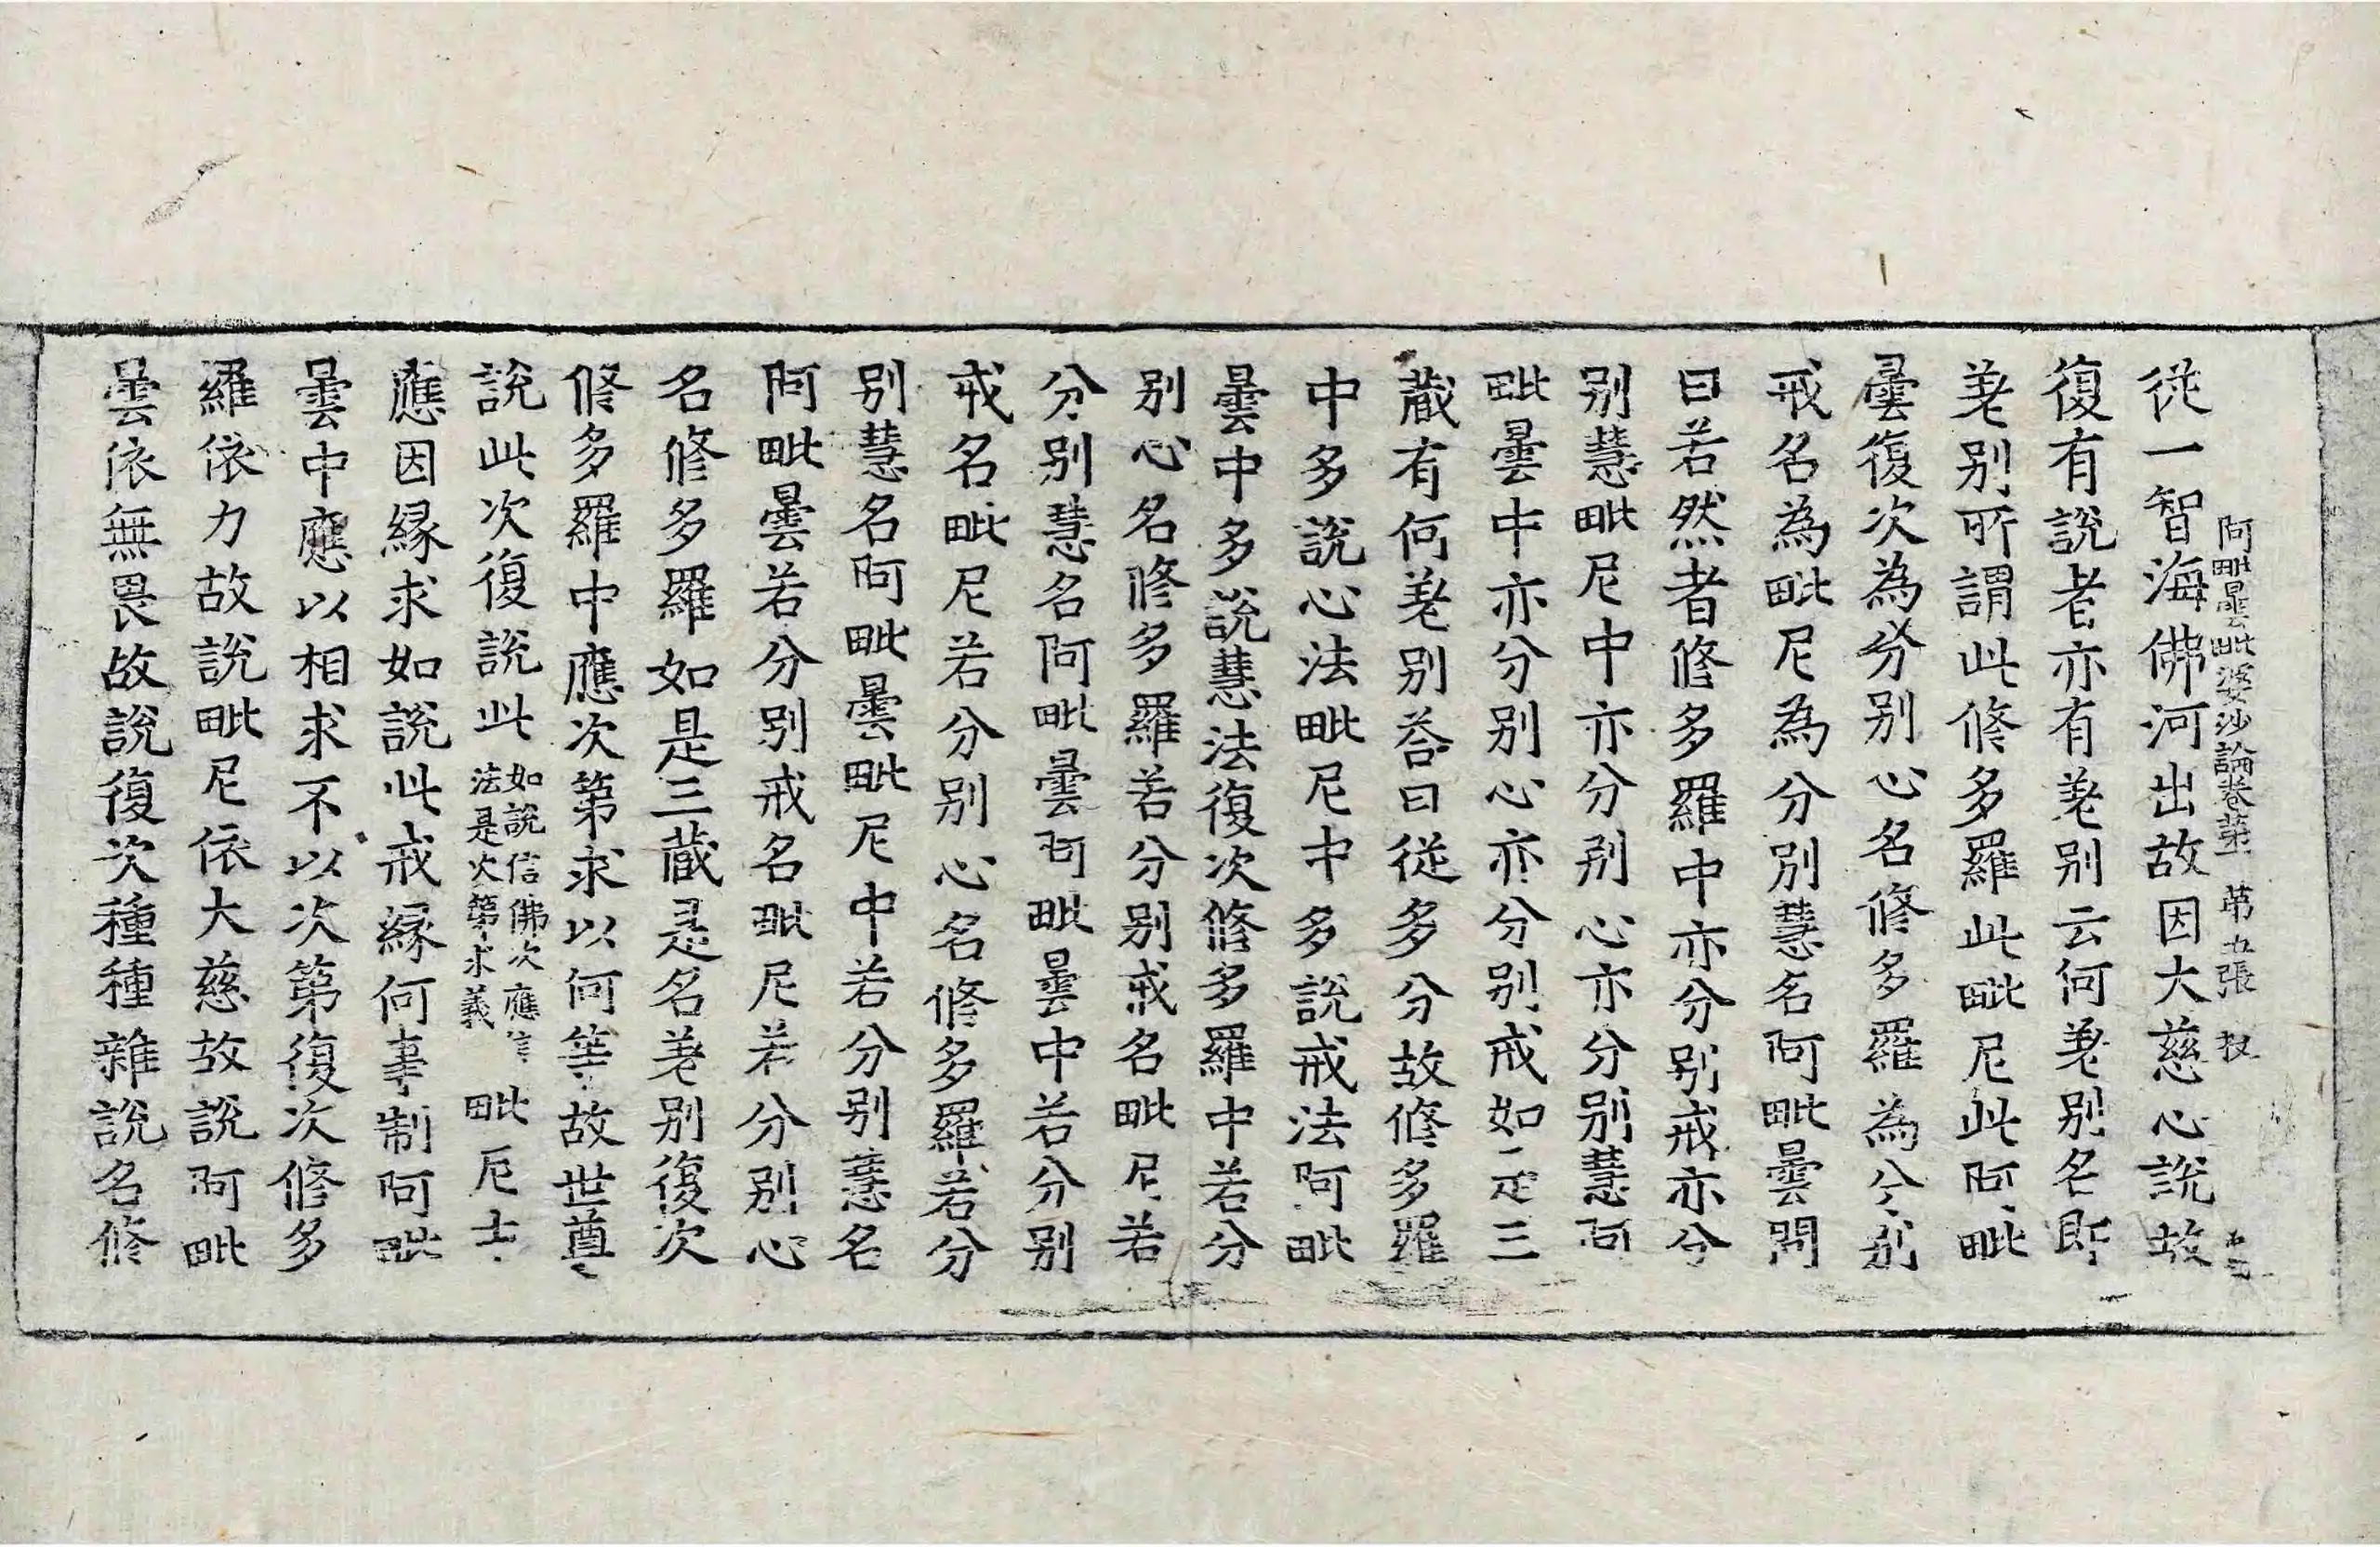 阿毗曇毗婆沙論卷第一 第五張 投
從一智海佛河出故因大慈心說故
復有說者亦有差別云何差別名即
差別所謂此修多羅此毗尼此阿毗
曇復次為分別心名修多羅為分別
戒名為毗尼為分別慧名阿毗曇問
曰若然者修多羅中亦分別戒亦分
別慧毗尼中亦分別心亦分別慧阿
毗曇中亦分別心亦分別戒如是三
藏有何差別答曰從多分故修多羅
中多說心法毗尼中多說戒法阿毗
曇中多說慧法復次修多羅中若分
別心名修多羅若分別戒名毗尼若
分別慧名阿毗曇阿毗曇中若分別
戒名毗尼若分別心名修多羅若分
別慧名阿毗曇毗尼中若分別慧名
阿毗曇若分別戒名毗尼若分別心
名修多羅如是三藏是名差別復次
修多羅中應次第求以何等故世尊
說此次復說此如說信佛次應信法是次第求義毗尼十
應因緣求如說此戒緣何事制阿毗
曇中應以相求不以次第復次修多
羅依力故說毗尼依大慈故說阿毗
曇依無畏故說復次種種雜說名修